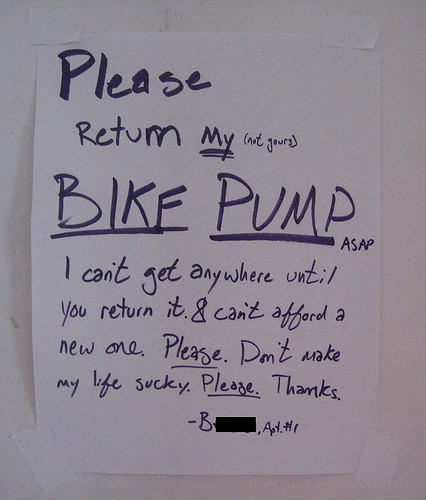 Please
Return My (not yours)
BIKE PUMP
ASAP
I can't get anywhere until
you return it. & can't afford a
new one. Please. Don't make
my life sucky. Please. Thanks.
-B , Apt. #1